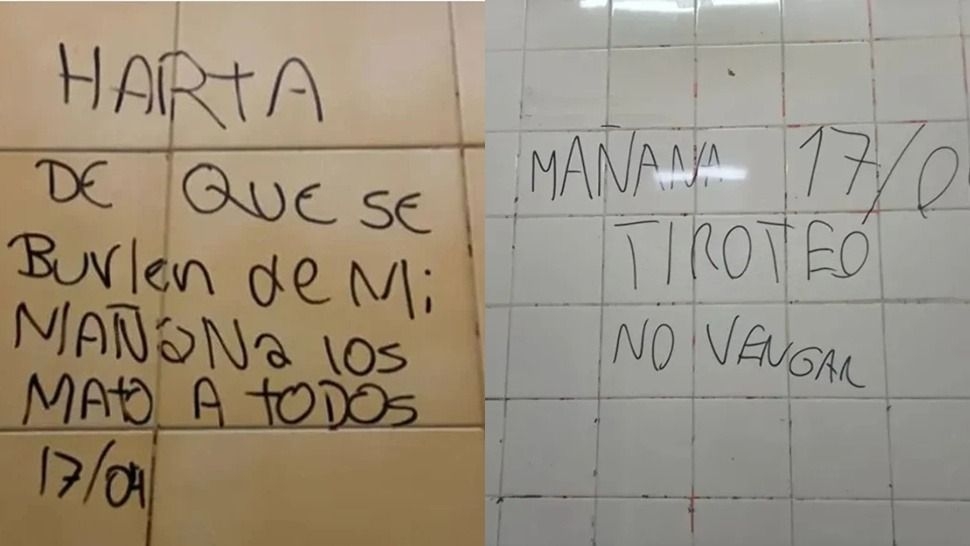 HARTA
DE QUE SE
Burlen de Mi
MAÑaNa los
MAto A toDOS
17/04
MAÑANA 17/0
TIROTEO
NO VENGAN